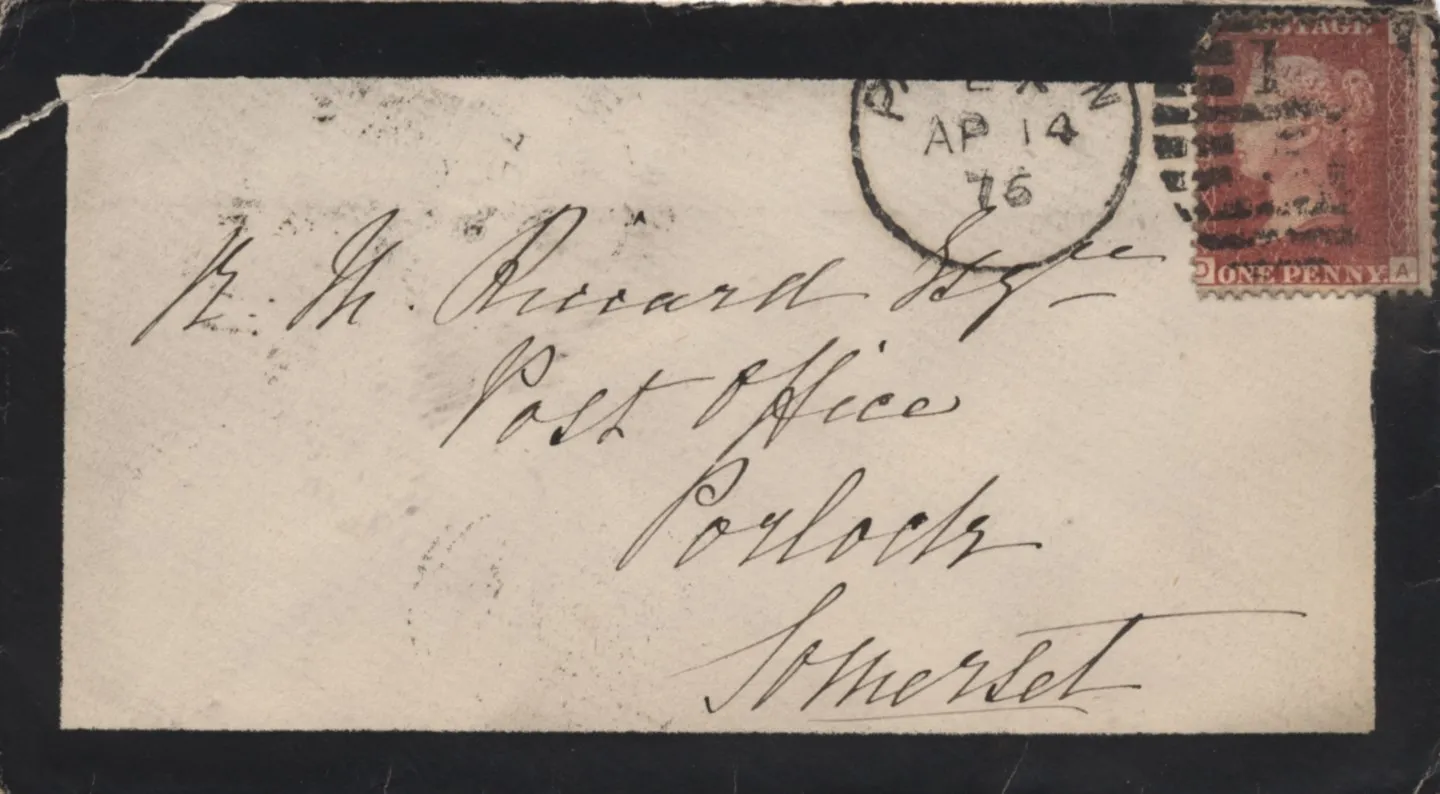 POSTAGE
AP 14
76
R. M. Riccard Esqre
Post Office
Porlock
Somerset
D ONE PENNY A